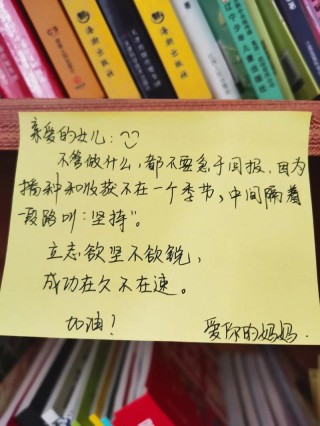 出版社
出版社
少年儿童出版社
亲爱的女儿：
不管做什么，都不要急于回报，因为
播种和收获不在一个季节，中间隔着
一段路叫：坚持”。
立志欲坚不欲锐，
成功在久不在速。
加油！
爱你的妈妈.